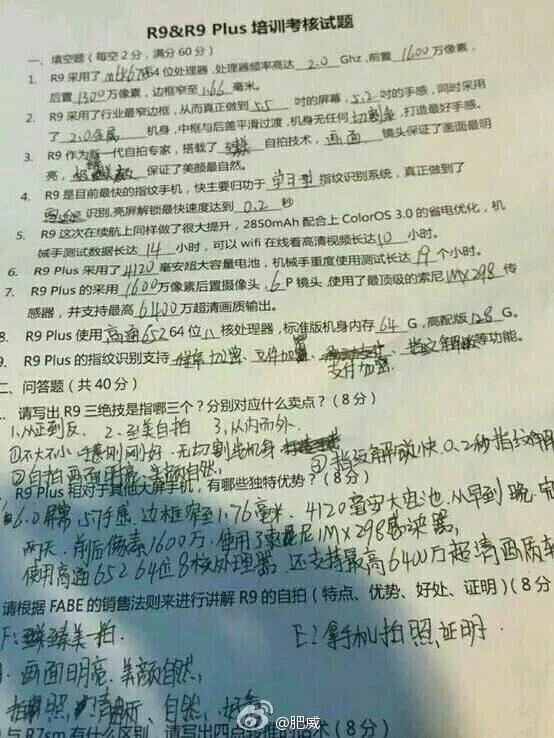 R9&R9 Plus 培训考核试题
一、填空题（每空2分，满分60分）
1. R9采用了mtk6755 64位处理器，处理器频率高达 2.0 Ghz，前置 1600万像素，
后置1300万像素，边框窄至1.66毫米。
2. R9采用了行业最窄边框，从而真正做到 5.5 吋的屏幕，5.2吋的手感，同时采用
了 2.0金属 机身，中框与后盖平滑过渡，机身无任何切割金，打造最好手感。
3. R9作为新一代自拍专家，搭载了 臻美 自拍技术，画面 镜头保证了画面最明
亮， 保证了美颜最自然。
4. R9是目前最快的指纹手机，快主要归功于 学习型 指纹识别系统，真正做到了
识别，亮屏解锁最快速度达到 0.2 秒
5. R9这次在续航上同样做了很大提升，2850mAh配合上ColorOS 3.0的省电优化，机
械手测试数据长达 14 小时，可以wifi在线看高清视频长达10 小时。
6. R9 Plus采用了4120毫安超大容量电池，机械手重度使用测试长达 19 个小时。
7. R9 Plus的采用 1600万像素后置摄像头，6 P镜头，使用了最顶级的索尼IMX298 传
感器，并支持最高 6400万超清画质输出。
8. R9 Plus使用高通652 64位 八 核处理器，标准版机身内存 64 G，高配版128 G。
9. R9 Plus的指纹识别支持 、文件加密、 、 等功能。
支付加密
二、问答题（共40分）
请写出R9三绝技是指哪三个？分别对应什么卖点？（8分）
1.从正到反. 2.至美自拍 3.从内而外.
①不大不小 刚刚好. 无切割金机身 ③指纹解放快.0.2秒指纹解
②自拍画面明亮.美颜自然.
R9 Plus相对于其他大屏手机，有哪些独特优势？（8分）
6.0屏幕 5.7手感. 边框窄至1.76毫米. 4120毫安大电池.从早到晚.
两天. 前后像素1600万. 使用了索尼IMX298感染器，
使用高通652 64位8核处理器. 还支持最高6400万超清画质
请根据FABE的销售法则来进行讲解R9的自拍（特点、优势、好处、证明）（8分
F:臻美一拍. E:拿手机拍照证明.
画面明亮.美颜自然，
拍照 清晰、自然、
与R7sm有什么区别，请写出四点 （8分）
@肥威